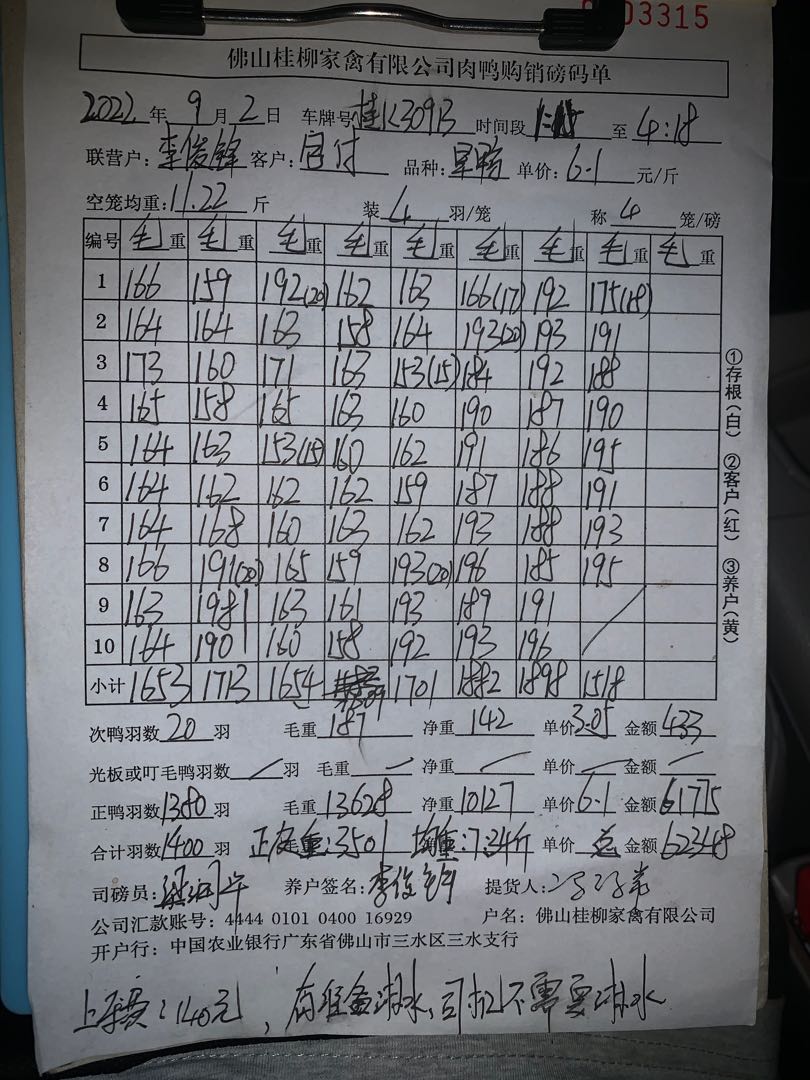 03315
佛山桂柳家禽有限公司肉鸭购销磅码单
2022年9月2日 车牌号桂K3091B 时间段1:15至4:18
联营户:李俊锋 客户:自付 品种: 单价:6.1元/斤
空笼均重:11.22斤 装4羽/笼 称4笼/磅
编号 毛重 毛重 毛重 毛重 毛重 毛重 毛重 毛重 毛重
1 166 159 192(20) 162 163 166(17) 192 175(18)
2 164 164 163 158 164 193(20) 193 191
3 173 160 171 163 153(15) 184 192 188
4 165 158 165 163 160 190 187 190
5 164 163 153(15) 160 162 191 186 195
6 164 162 162 162 159 187 188 191
7 164 168 160 163 162 193 188 193
8 166 191(20) 165 159 193(20) 196 185 195
9 163 198 163 161 193 189 191
10 164 190 160 158 192 193 196
小计 1653 1713 1654 1609 1701 1882 1898 1518
①存根(白) ②客户(红) ③养户(黄)
次鸭羽数20羽 毛重187 净重142 单价3.05 金额433
光板或叮毛鸭羽数/羽 毛重/ 净重/ 单价/ 金额/
正鸭羽数1380羽 毛重13628 净重10127 单价6.1 金额61775
合计羽数1400羽 正皮重:3501 均重:7.34斤 单价 总金额62348
司磅员: 养户签名:李俊锋 提货人:
公司汇款账号:4444 0101 0400 16929 户名:佛山桂柳家禽有限公司
开户行:中国农业银行广东省佛山市三水区三水支行
上车费:140元,有准备淋水,司机不需要淋水